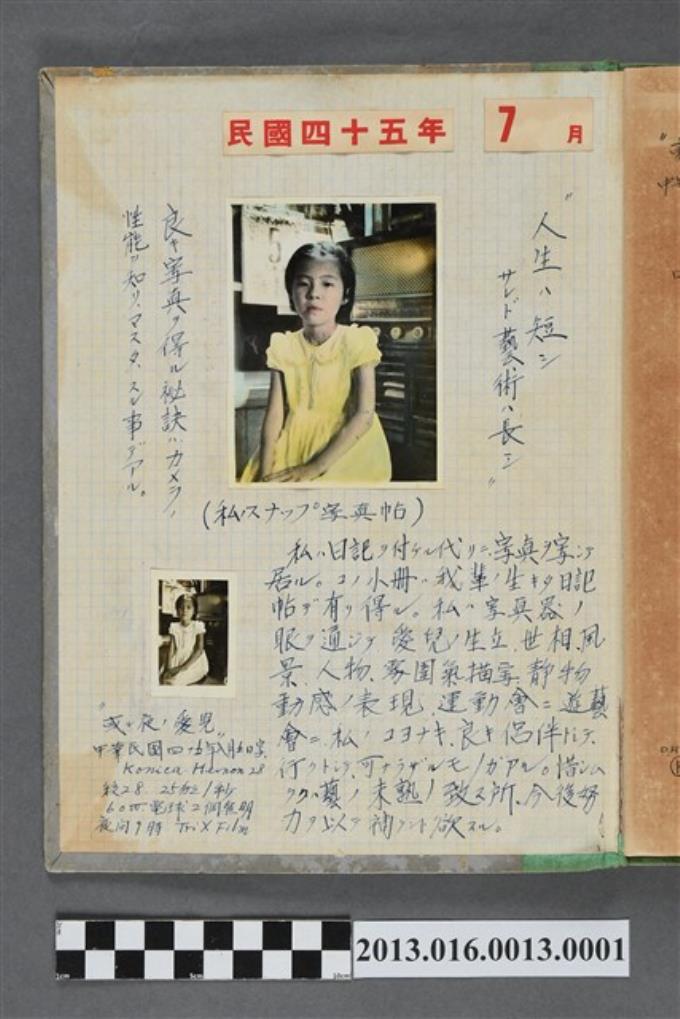 民國四十五年
7 月
"人生ハ短シ
サレド藝術ハ長シ"
良キ寫真ヲ得ル祕訣ハカメラノ
性能ヲ知リ、マスタースル事デアル。
(私ノスナップ寫真帖)
私ハ日記ヲ付ケル代リニ、寫真ヲ寫シテ
居ル。コノ小冊ハ我輩ノ生キタ日記
帖デ有リ得ル。私ハ寫真器ノ
眼ヲ通シテ、愛兒ノ生立、世相、風
景、人物、雰圍氣描写、静物
動感ノ表現、運動會ニ遊藝
會ニ、私ノコヨナキ、良キ侶伴トシテ、
行クトシテ可ナラザルモノガアル。惜シム
ラクハ藝ノ未熟ノ致ス所、今後努
力ヲ以テ補ハント欲スル。
"或ル夜ノ愛兒"
中華民國四十五年 月 日寫
Konica
28 25分ノ1秒
60W電球2個照明
夜間9時 Tri X Film
2013.016.0013.0001